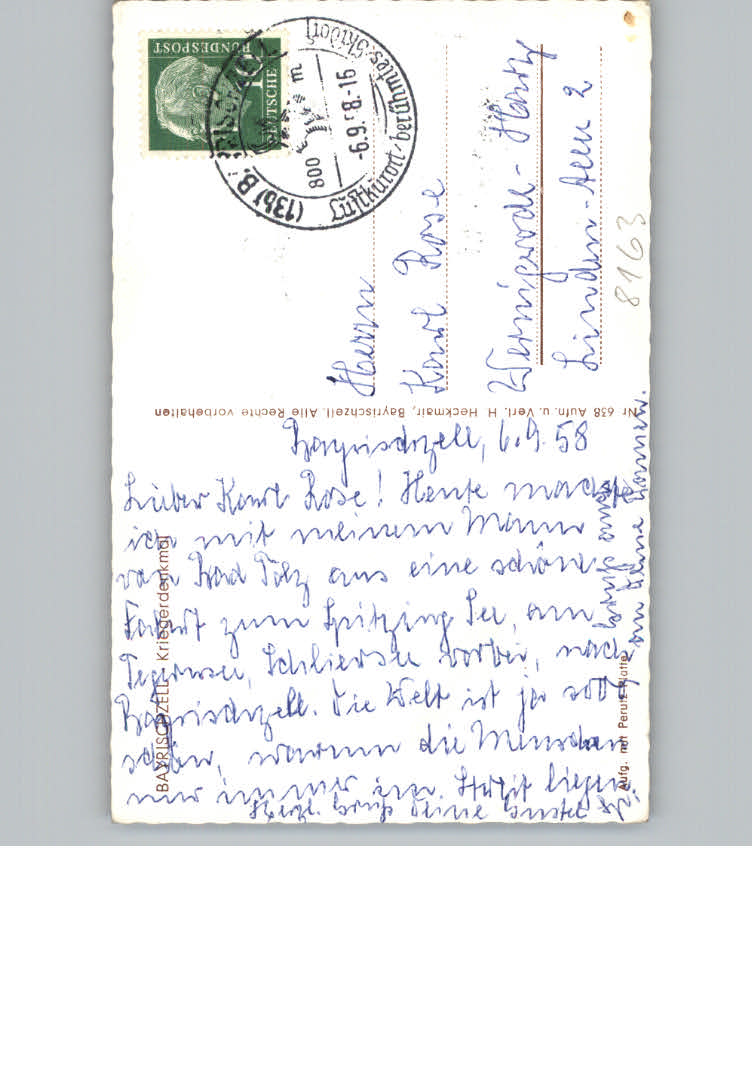 BUNDESPOST
DEUTSCHE
(13b) B
800 m
-6.9.58.-16
Luftkurort, berühmtes Skidorf
Herrn
Karl Rose
Wernigerode-Harz
Linden-Allee 2
8163
Nr 638 Aufn. u. Verl. H. Heckmair, Bayrischzell. Alle Rechte vorbehalten
BAYRISCHZELL Kriegerdenkmal
Aufg. mit Perutz-Platte
Bayrischzell, 6.9.58
Lieber Karl Rose! Heute mache
ich mit meinem Mann
von Bad Tölz aus eine schöne
Fahrt zum Spitzing See, am
Tegernsee, Schliersee vorbei, nach
Bayrischzell. Die Welt ist ja so
schön, warum die Menschen
nur immer im Streit liegen.
Herzl. Gruß Deine Gustel
Gruß auch
an Deine